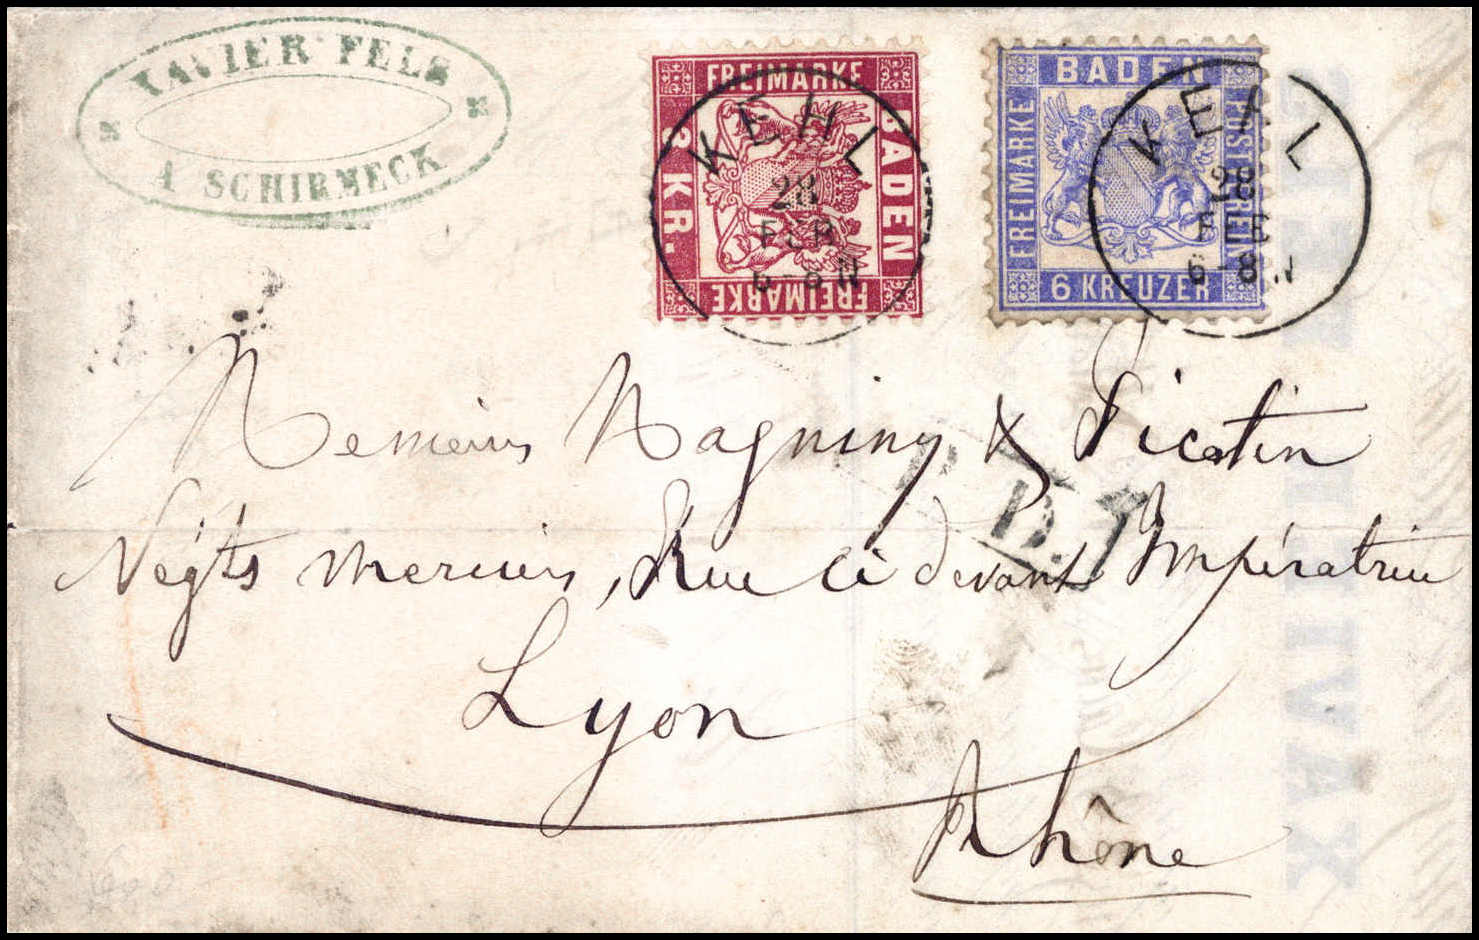 XAVIER FELS
A SCHIRMECK
FREIMARKE
BADEN
3 KR.
FREIMARKE
KEHL
28
FEB
6-8 N
BADEN
FREIMARKE
POSTVEREIN
6 KREUZER
KEHL
28
FEB
6-8 N
Messieurs Magniny & Picotin
P.D.
Négts merciers, Rue ci devant Impératrice
Lyon
Rhône